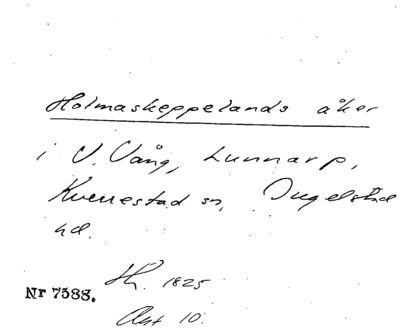 Holmaskeppelands åker
i V. Vång, Lunnarp,
Kverrestad sn, Ingelstad
hd.
Sk. 1825
Nr 7588.
Akt 10.